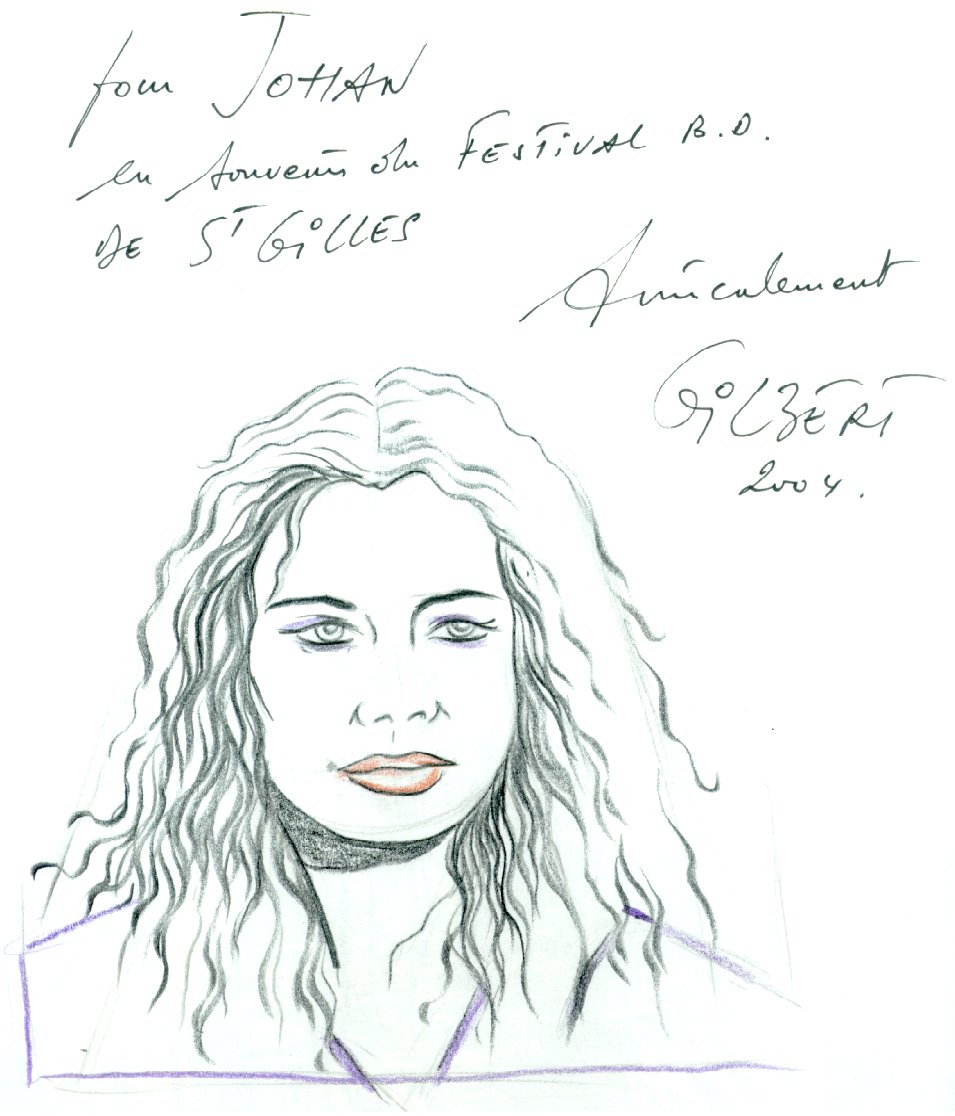 pour JOHAN
en souvenir du FESTIVAL B.D.
DE ST GILLES
Amicalement
GILBERT
2004.